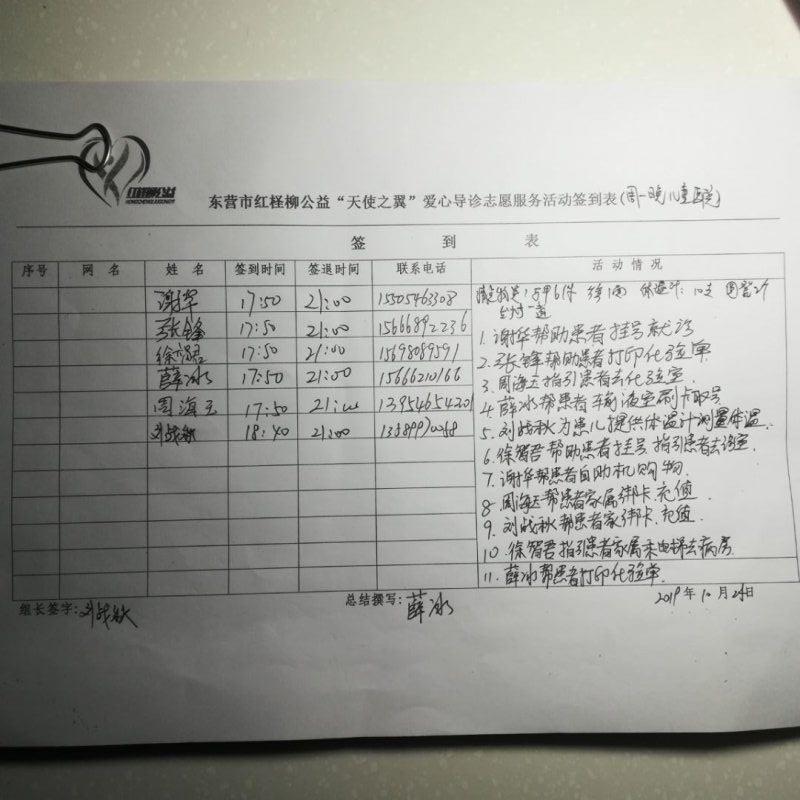 红柽柳公益
HONGCHENGLIUGONGYI
东营市红柽柳公益“天使之翼”爱心导诊志愿服务活动签到表(周一晚儿童医院)
签 到 表
序号 网 名 姓 名 签到时间 签退时间 联系电话 活 动 情 况
谢华 17:50 21:00 15505463308
张锋 17:50 21:00 15666892236
徐智君 17:50 21:00 15698089591
薛冰 17:50 21:00 15666210166
周海玉 17:50 21:00 13954654201
刘战秋 18:40 21:00
1. 谢华帮助患者挂号就诊
2. 张锋帮助患者打印化验单
3. 周海玉指引患者去化验室
4. 薛冰帮患者车输液室刷卡取号
5. 刘战秋为患儿提供体温计测量体温.
6. 徐智君帮助患者挂号 指引患者去诊室.
7. 谢华帮患者自助机购物.
8. 周海玉帮患者家属绑卡.充值.
9. 刘战秋帮患者家绑卡.充值.
10. 徐智君指引患者家属乘电梯去病房
11. 薛冰帮患者打印化验单.
组长签字:刘战秋 总结撰写:薛冰 2019年10月24日